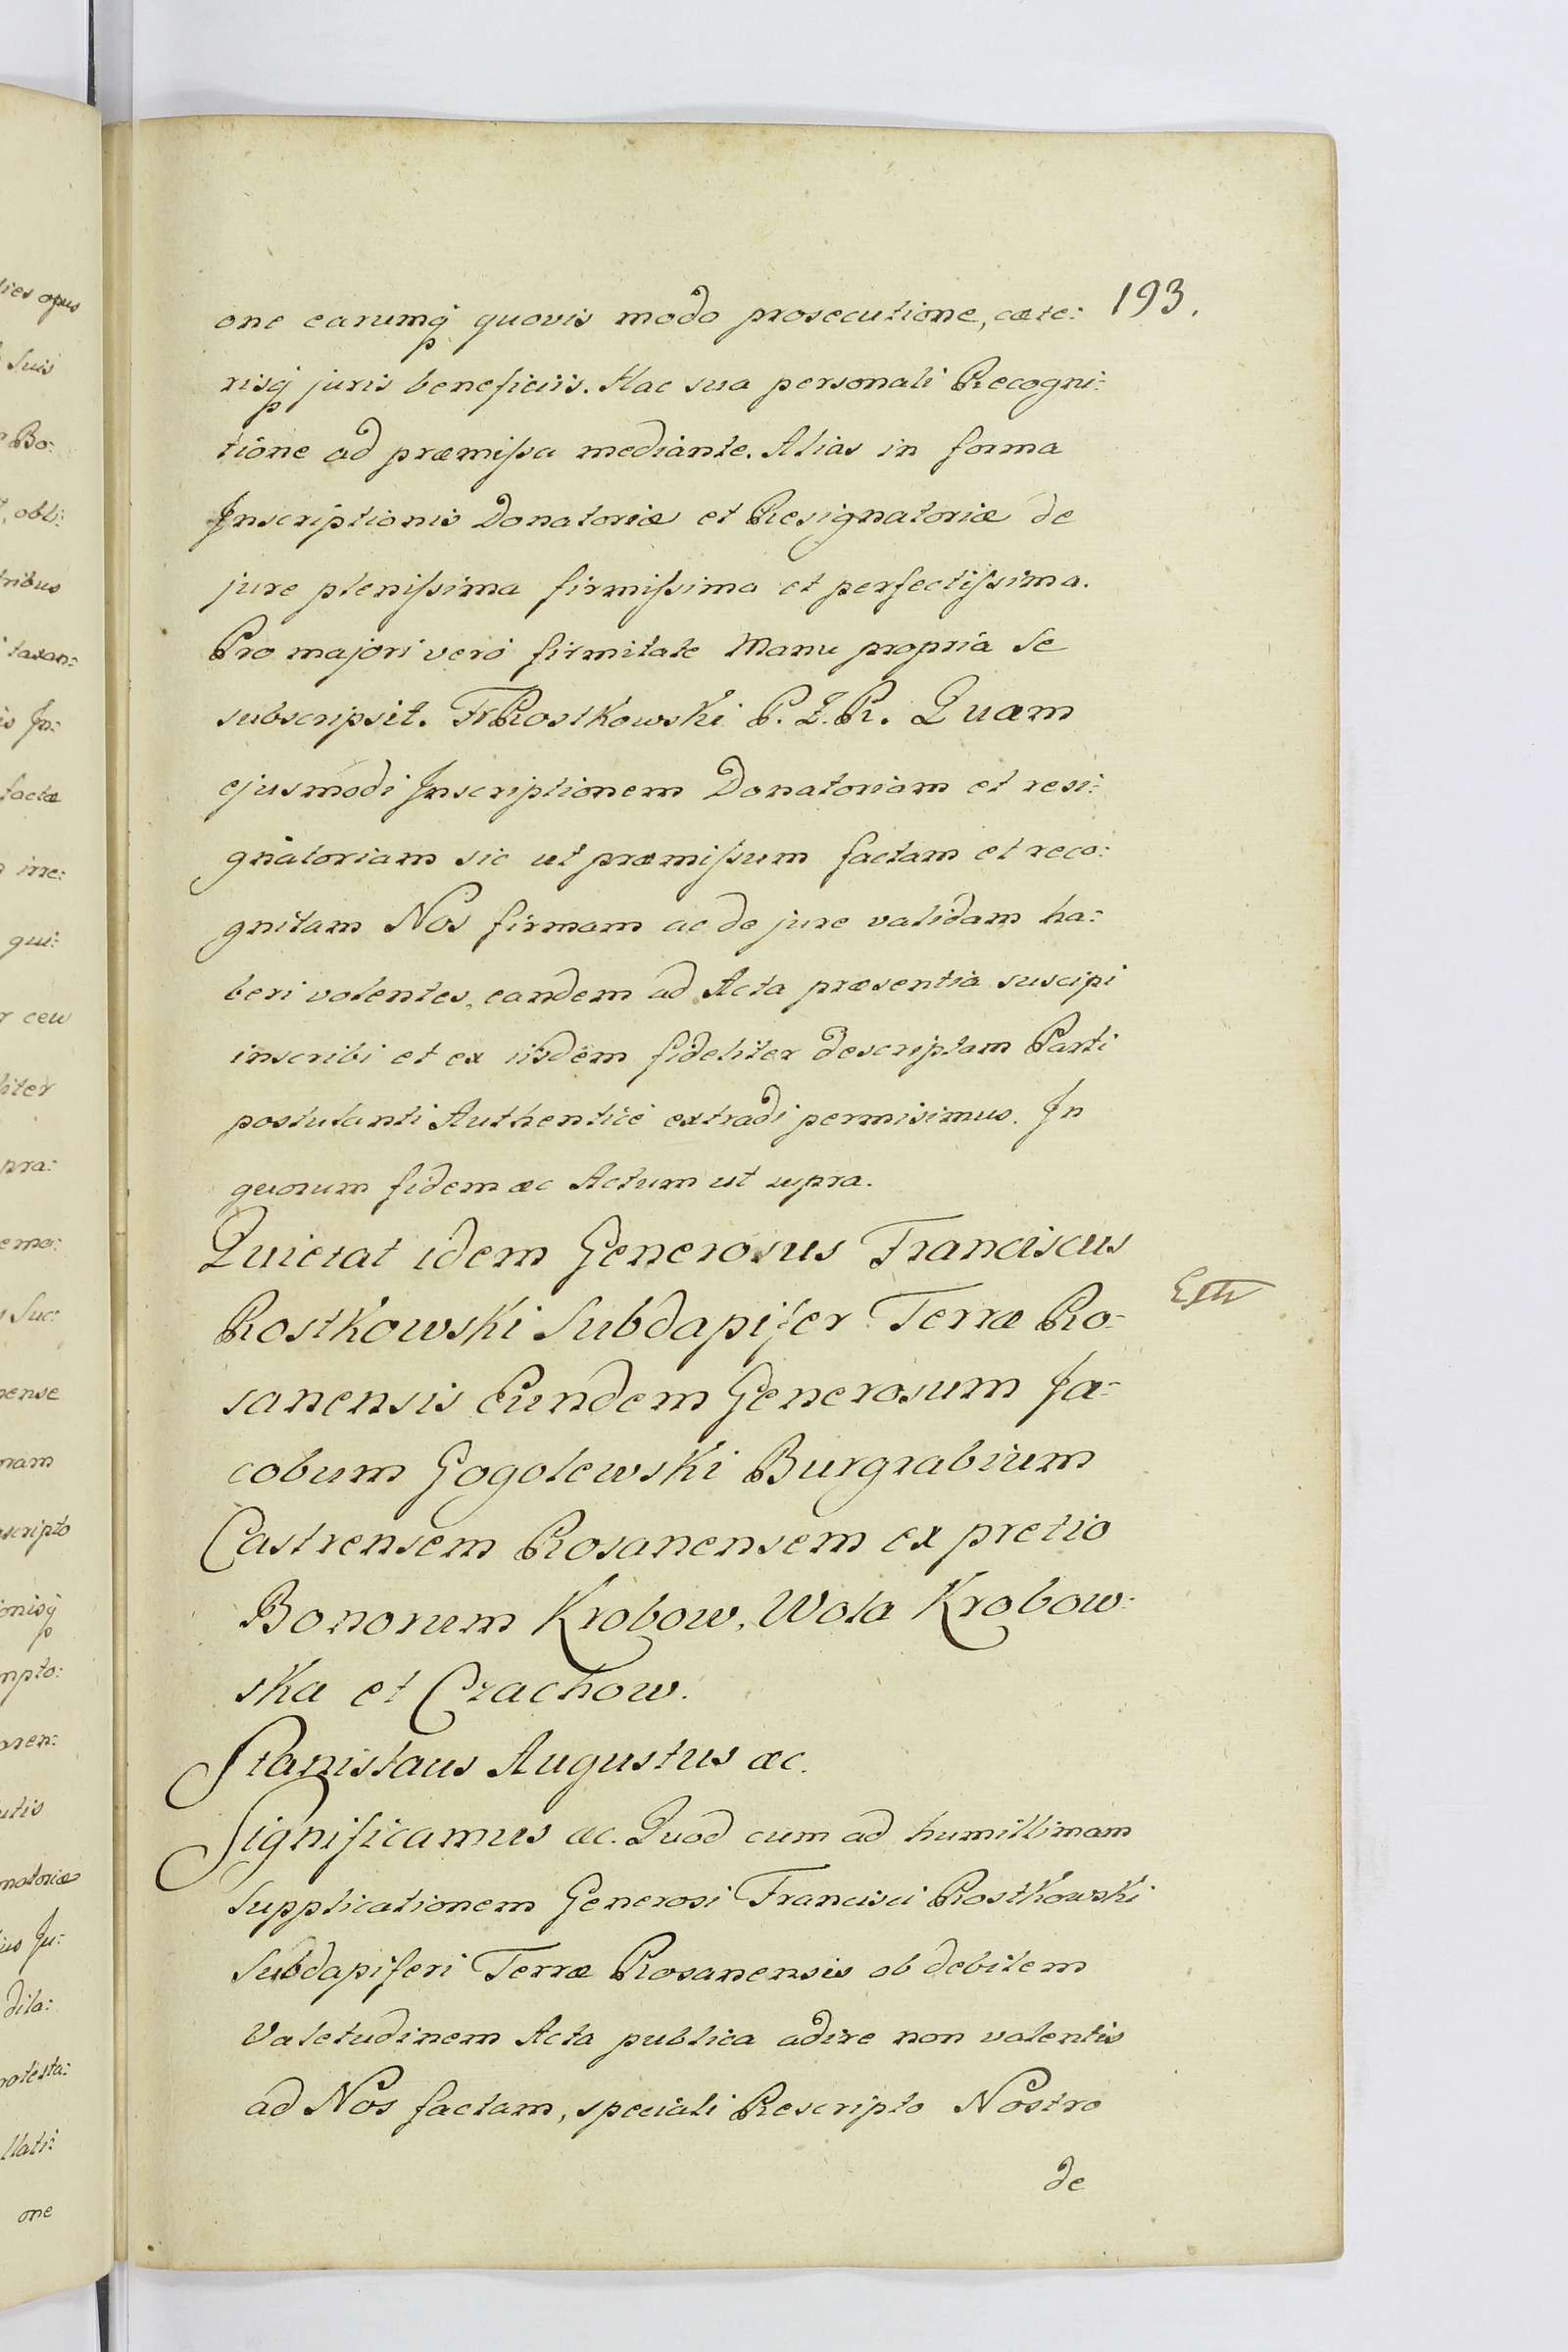 193.
one earumq́ quovis modo prosecutione, cæte:
risq́ juris beneficiis. Hac sua personali Recogni:
tione ad præmissa mediante. Alias in forma
Inscriptionis Donatoriæ et Resignatoriæ de
jure plenissima firmissima et perfectissima.
Pro majori vero firmitate Manu propria Se
subscripsit. FrRostkowski P. Z. R. Quam
ejusmodi Inscriptionem Donatoriam et resi:
gnatoriam sic ut præmissum factam et reco:
gnitam Nos firmam ac de jure validam ha:
beri volentes, eandem ad Acta præsentia suscipi
inscribi et ex iisdem fideliter descriptam Parti
postulanti Authentice extradi permisimus. In
quorum fidem æc Actum ut supra.
Quietat idem Generosus Franciscus
Rostkowski Subdapifer Terræ Ro-
sanensis Eundem Generosum Ja-
cobum Gogolewski Burgrabium
Castrensem Rosanensem ex pretio
Bonorum Krobow, Wola Krobow-
ska et Czachow.
Stanislaus Augustus æc.
Significamus æc. Quod cum ad humillimam
Supplicationem Generosi Francisci Rostkowski
Subdapiferi Terræ Rosanensis ob debilem
Valetudinem Acta publica adire non valentis
ad Nos factam, speciali Rescripto Nostro
de